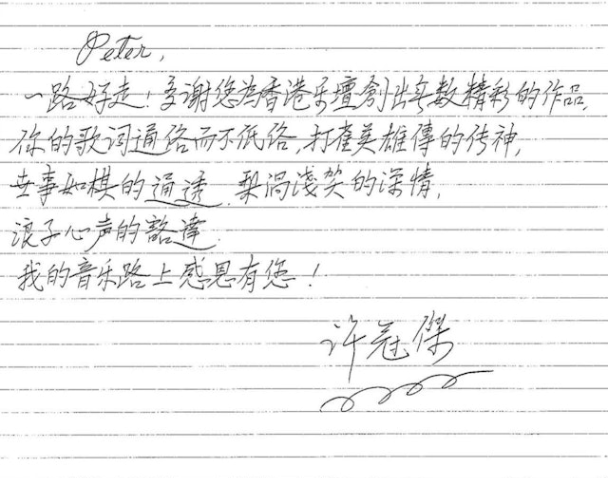 Peter,
一路好走！多谢您为香港乐壇創出无数精彩的作品,
你的歌词通俗而不低俗,打雀英雄傳的传神,
世事如棋的通透,梨涡淺笑的深情,
浪子心声的豁達,
我的音乐路上感恩有您！
许冠傑